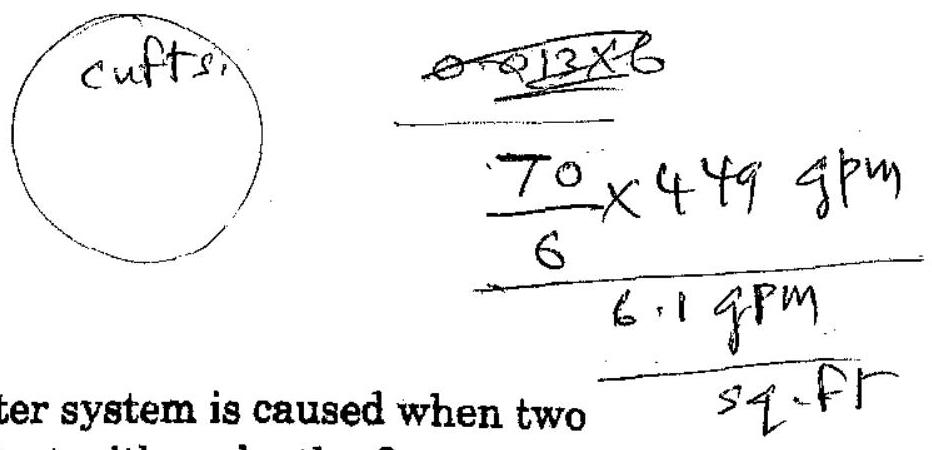 cufts.
0.013×6
70
6
× 449 gpm
6.1 gpm
sq.ft
ter system is caused when two